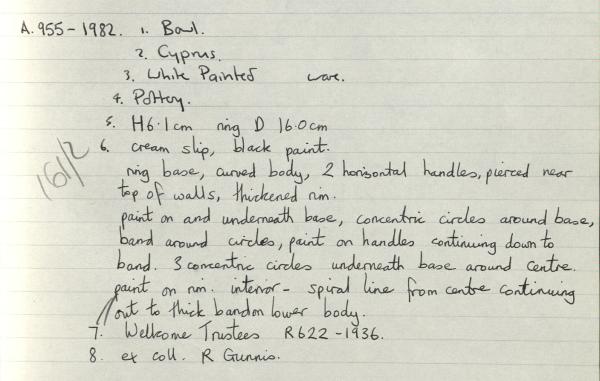 A.955-1982. 1. Bowl.
2. Cyprus.
3. White Painted ware.
4. Pottery.
5. H6.1cm ring D 16.0cm
6. cream slip, black paint.
ring base, curved body, 2 horizontal handles, pierced near
top of walls, thickened rim.
paint on and underneath base, concentric circles around base,
band around circles, paint on handles continuing down to
band. 3 concentric circles underneath base around centre.
paint on rim. interior - spiral line from centre continuing
out to thick band on lower body.
7. Wellcome Trustees R622-1936.
8. ex coll. R Gunnis.
161/2